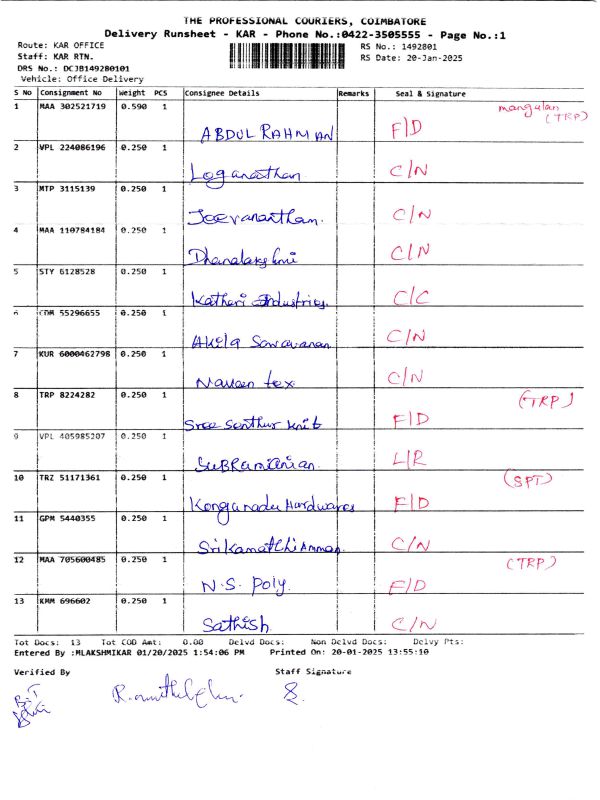 THE PROFESSIONAL COURIERS, COIMBATORE
Delivery Runsheet - KAR - Phone No.:0422-3505555 - Page No.:1
Route: KAR OFFICE RS No.: 1492801
Staff: KAR RTN. RS Date: 20-Jan-2025
DRS No.: DCJB149280101
Vehicle: Office Delivery
S No Consignment No Weight PCS Consignee Details Remarks Seal & Signature
1 MAA 302521719 0.590 1 ABDUL RAHMAN F/D mangalan (TRP)
2 VPL 224086196 0.250 1 Loganathan C/N
3 MTP 3115139 0.250 1 Jeevanantham. C/N
4 MAA 110784184 0.250 1 Dhanalakshmi C/N
5 STY 6128528 0.250 1 Katheri Industries. C/C
6 CDM 55296655 0.250 1 Akila Saravanan C/N
7 KUR 6000462798 0.250 1 Naveen tex C/N
8 TRP 8224282 0.250 1 Sree Senthur knit F/D (TRP)
9 VPL 405985207 0.250 1 SUBRamanian. L/R
10 TRZ 51171361 0.250 1 Konganadu Hardwares F/D (SPT)
11 GPM 5440355 0.250 1 Srikamatchi Amman. C/N
12 MAA 705600485 0.250 1 N.S. Poly. F/D (TRP)
13 KMM 696602 0.250 1 Sathish C/N
Tot Docs: 13 Tot COD Amt: 0.00 Delvd Docs: Non Delvd Docs: Delvy Pts:
Entered By :MLAKSHMIKAR 01/20/2025 1:54:06 PM Printed On: 20-01-2025 13:55:10
Verified By Staff Signature